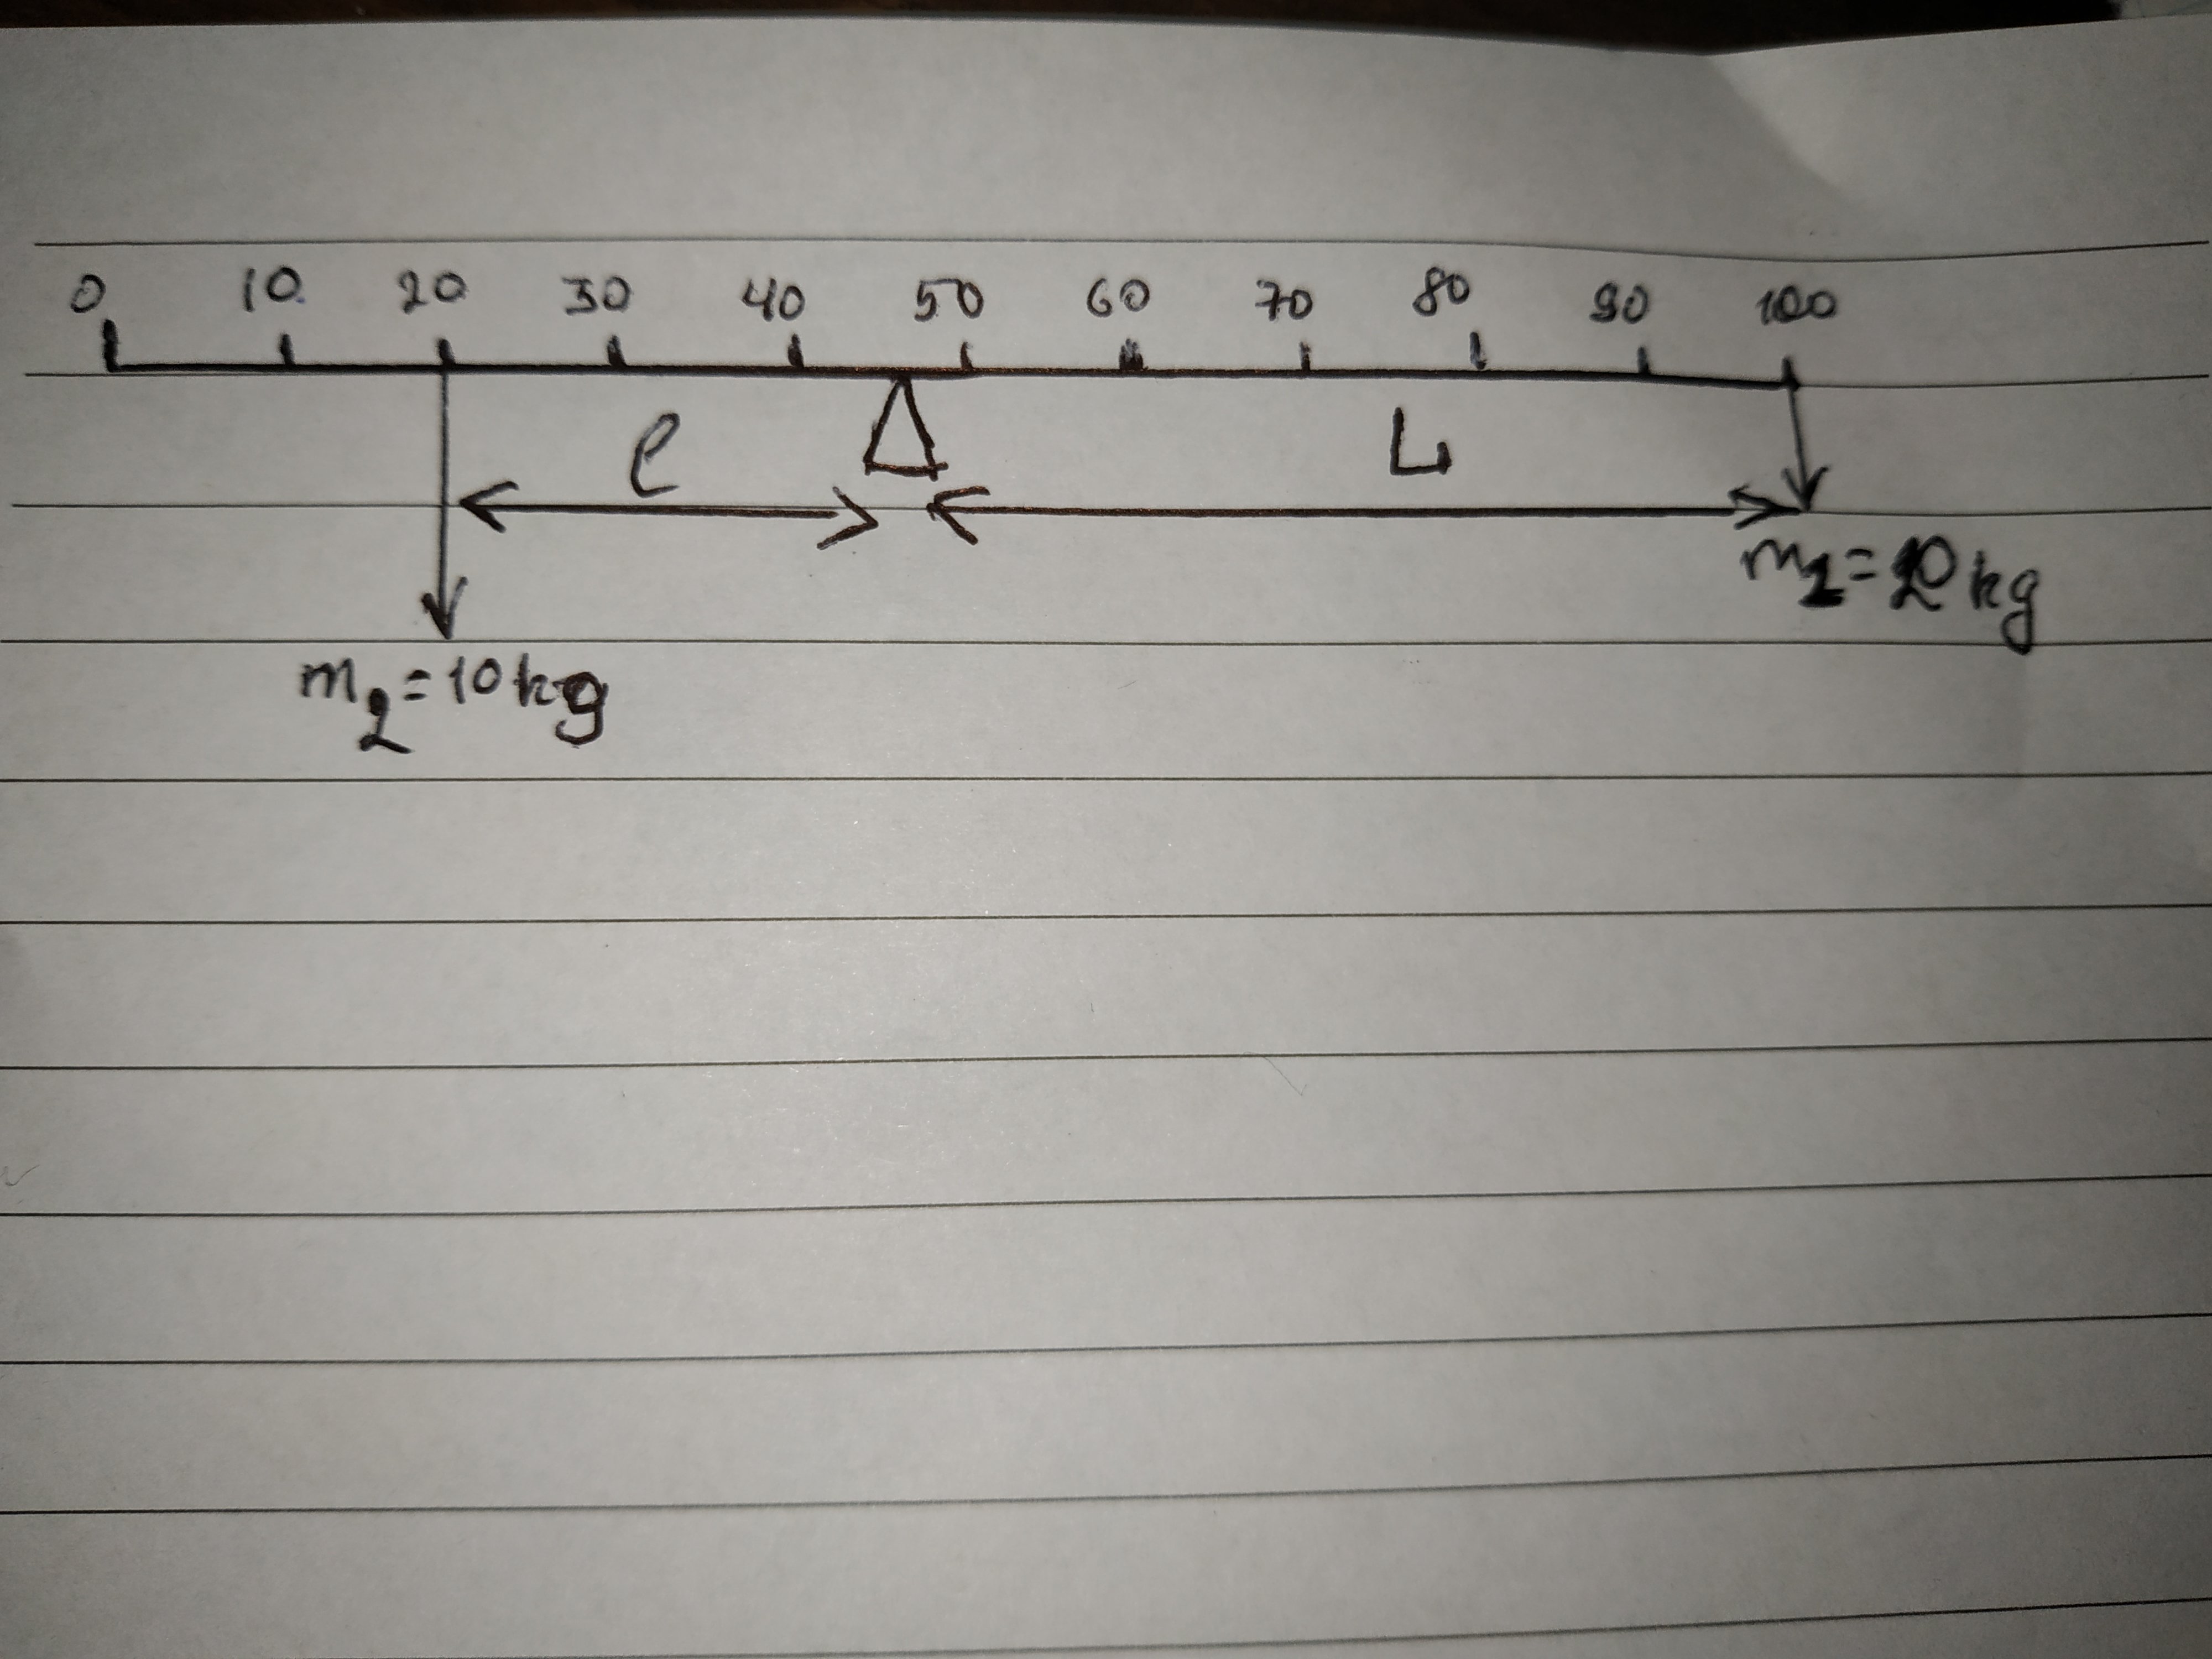 0 10 20 30 40 50 60 70 80 90 100
l L
m₂=10kg